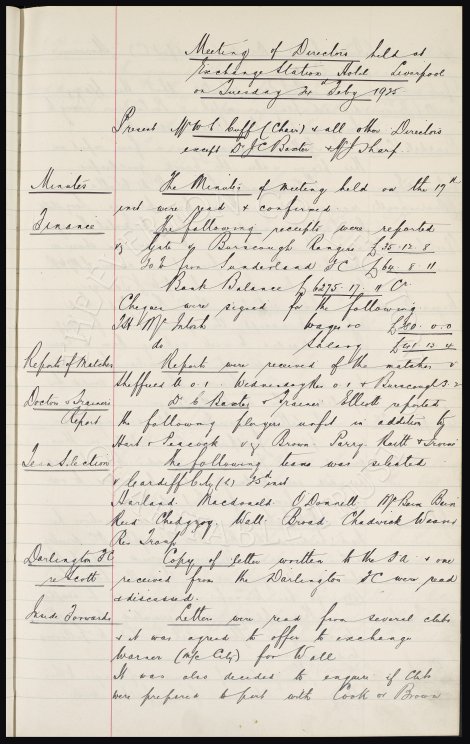 Meeting of Directors held at
Exchange Station Hotel Liverpool
on Tuesday 24th Feby 1925
Present Mr W C Cuff (Chair) & all other Directors
except Dr J C Baxter & W J Sharp.
Minutes The Minutes of meeting held on the 17th
inst were read & confirmed
Finance The following receipts were reported
Gate v Burscough Rangers £35. 13. 8
from Sunderland F C £64. 8. 11
Bank Balance £6275. 17. 11 Cr.
Cheques were signed for the following
T H McIntosh Wages £ 0. 0
do. Salary £41. 13. 4
Reports of Matches Reports were received of the matches v
Sheffield U 0.1. Wednesday Res 0.1 & Burscough 3.2
Doctors & Trainers Report Dr C Baxter & Trainer Elliott reported
the following players unfit in addition to
Hart & Peacock viz Brown. Parry. Raitt & Irvine
Team Selection The following team was selected
v Cardiff City (L) 28th inst
Harland. Macdonald. O'Donnell. McBain Bain
Reid Chedgzoy Wall. Broad. Chadwick Weaver
Res Troup
Darlington FC re Scott Copy of letter written to the F A. & one
received from the Darlington F C were read
& discussed.
Inside Forwards Letters were read from several clubs
& it was agreed to offer to exchange
Warner (M/c City) for Wall
It was also decided to enquire if Clubs
were prepared to part with Cook or Brown